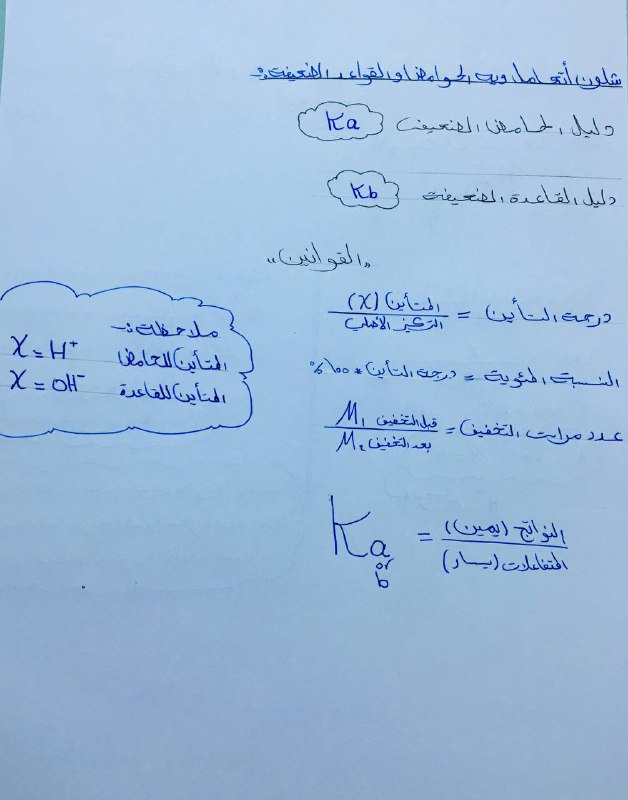 شلون أتعامل ويه الحوامض والقواعد الضعيفة؟
دليل الحامض الضعيف Ka
دليل القاعدة الضعيفة Kb
"القوانين"
درجة التأين = المتأين (X) / التركيز الأصلي
النسبة المئوية = درجة التأين * 100 %
عدد مرات التخفيف = M1 قبل التخفيف / M2 بعد التخفيف
Ka or b = النواتج (يمين) / المتفاعلات (يسار)
ملاحظات :-
المتأين للحامض X = H⁺
المتأين للقاعدة X = OH⁻